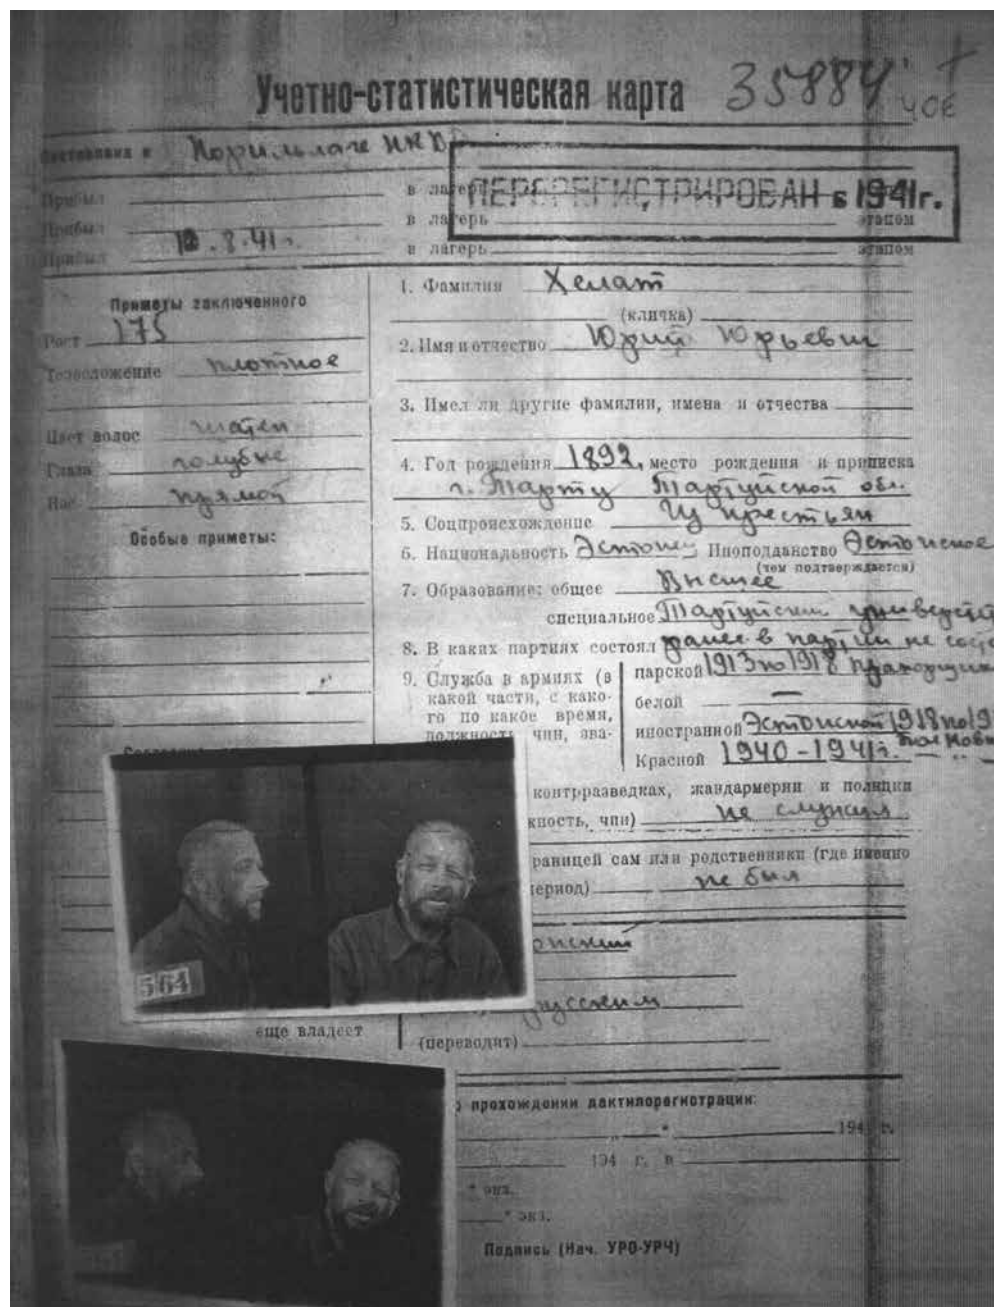 Учетно-статистическая карта 35884
Норильлаге НКВД
ПЕРЕРЕГИСТРИРОВАН в 1941г.
Прибыл в лагерь
Прибыл 10.8.41г. в лагерь этапом
Прибыл в лагерь этапом
Приметы заключенного
Рост 175
Телосложение плотное
Цвет волос шатен
Глаза голубые
Нос прямой
Особые приметы:
1. Фамилия Хелат
(кличка)
2. Имя и отчество Юрий Юрьевич
3. Имел ли другие фамилии, имена и отчества
4. Год рождения 1892, место рождения и приписка
г. Тарту Тартуйской обл.
5. Соцпроисхождение Из крестьян
6. Национальность Эстонец Иноподданство Эстонское
(чем подтверждается)
7. Образование: общее Высшее
специальное Тартуйский
8. В каких партиях состоял ранее в партии не
9. Служба в армиях (в
какой части, с како-
го по какое время,
должность, чин, зва-
царской 1913 по 1918
белой —
иностранной Эстонской 1918 по
Красной 1940-1941г.
контрразведках, жандармерии и полиции
жность, чин) не служил
раницей сам или родственники (где именно
период) не был
564
русским
еще владеет
(переводит)
о прохождении дактилорегистрации:
" 194 г.
194 г. в
" экз.
" экз.
Подпись (Нач. УРО-УРЧ)